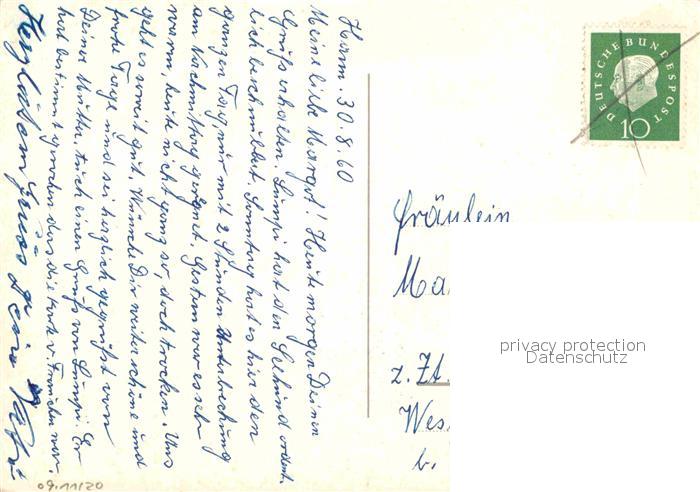 Hamm. 30.8.60
Meine liebe Margot! Heute morgen Deinen
Gruß erhalten. Lumpi hat den Seehund ordent-
lich beschnubbert. Sonntag hat es hier den
ganzen Tag, nur mit 2 Stunden Unterbrechung
am Nachmittag geregnet. Gestern war es sehr
warm, heute nicht ganz so, doch trocken. Uns
geht es somit gut. Wünsche Dir weiter schöne und
frohe Tage und sei herzlich gegrüßt von
Deiner Mutter, auch einen Gruß von Lumpi. Er
hat bestimmt gerochen das die Karte v. Frauchen war.
Herzlichen Gruß Dein
DEUTSCHE BUNDESPOST
10
Fräulein
Ma
z. Zt.
Wes
b.
privacy protection
Datenschutz
09.11/20